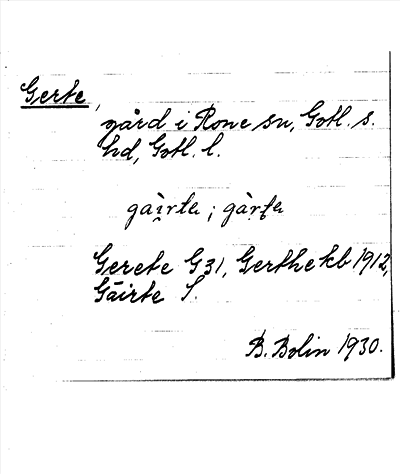 Gerte,
gård i Rone sn, Gotl. s.
hd, Gotl. l.
gài̯rta; gàrta
Gerete G31, Gerthe kb 1912,
Gāirte S.
B. Bolin 1930.